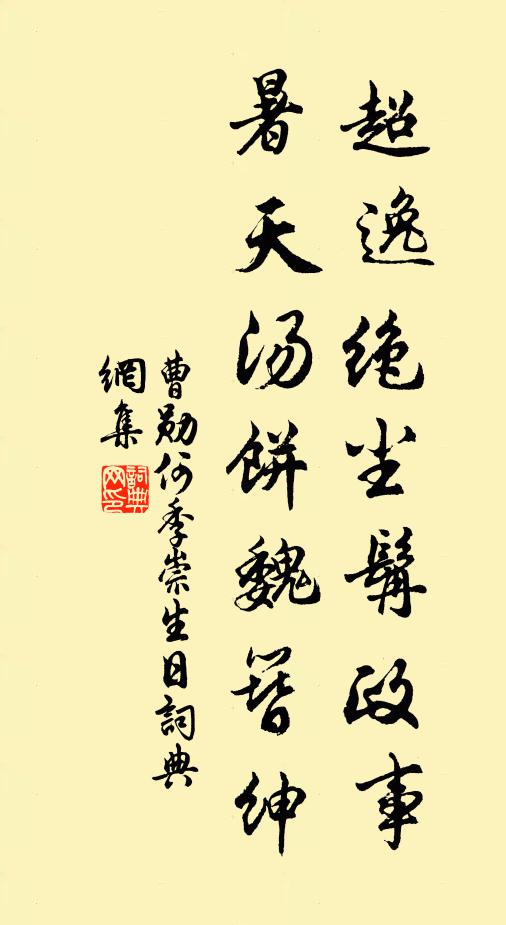 超逸绝尘髯政事
暑天汤餅魏簪绅
曹勋何季崇生日詞典
網集
詞典网印